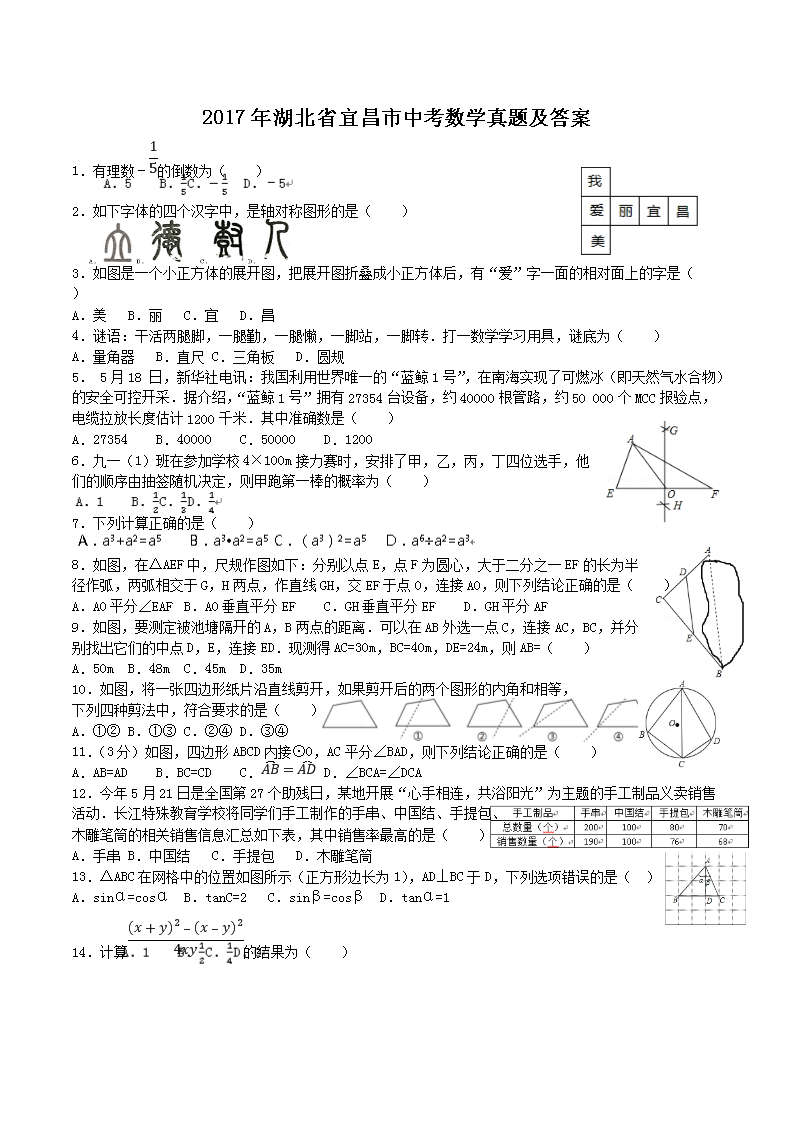 2017年湖北省宜昌市中考数学真题及答案
1．有理数﹣1/5的倒数为（　　）
A．5　B．1/5 C．﹣1/5　D．﹣5
我
爱 丽 宜 昌
美
2．如下字体的四个汉字中，是轴对称图形的是（　　）
A．立 B．德 C． D．人
3．如图是一个小正方体的展开图，把展开图折叠成小正方体后，有“爱”字一面的相对面上的字是（
）
A．美　B．丽　C．宜　D．昌
4．谜语：干活两腿脚，一腿勤，一腿懒，一脚站，一脚转．打一数学学习用具，谜底为（　　）
A．量角器　B．直尺 C．三角板　D．圆规
5． 5月18日，新华社电讯：我国利用世界唯一的“蓝鲸1号”，在南海实现了可燃冰（即天然气水合物）
的安全可控开采．据介绍，“蓝鲸1号”拥有27354台设备，约40000根管路，约50 000个MCC报验点，
电缆拉放长度估计1200千米．其中准确数是（　　）
A．27354　B．40000　C．50000　D．1200
6．九一（1）班在参加学校4×100m接力赛时，安排了甲，乙，丙，丁四位选手，他
们的顺序由抽签随机决定，则甲跑第一棒的概率为（　　）
A．1　B．1/2 C．1/3 D．1/4
G
A
E O F
H
7．下列计算正确的是（　　）
A．a³+a²=a⁵　B．a³•a²=a⁵ C．（a³）²=a⁵　D．a⁶÷a²=a³
8．如图，在△AEF中，尺规作图如下：分别以点E，点F为圆心，大于二分之一EF的长为半
径作弧，两弧相交于G，H两点，作直线GH，交EF于点O，连接AO，则下列结论正确的是（　　）
A．AO平分∠EAF B．AO垂直平分EF　C．GH垂直平分EF　D．GH平分AF
A
D
C
E
B
9．如图，要测定被池塘隔开的A，B两点的距离．可以在AB外选一点C，连接AC，BC，并分
别找出它们的中点D，E，连接ED．现测得AC=30m，BC=40m，DE=24m，则AB=（　　）
A．50m B．48m C．45m D．35m
10．如图，将一张四边形纸片沿直线剪开，如果剪开后的两个图形的内角和相等，
下列四种剪法中，符合要求的是（　　）
① ② ③ ④
A．①② B．①③ C．②④ D．③④
A
O
B D
C
11．（3分）如图，四边形ABCD内接⊙O，AC平分∠BAD，则下列结论正确的是（　　）
A．AB=AD　B．BC=CD　C．A͡B = A͡D　D．∠BCA=∠DCA
12．今年5月21日是全国第27个助残日，某地开展“心手相连，共浴阳光”为主题的手工制品义卖销售
活动．长江特殊教育学校将同学们手工制作的手串、中国结、手提包、
木雕笔筒的相关销售信息汇总如下表，其中销售率最高的是（　　）
手工制品 手串 中国结 手提包 木雕笔筒
总数量（个） 200 100 80 70
销售数量（个） 190 100 76 68
A．手串 B．中国结　C．手提包　D．木雕笔筒
13．△ABC在网格中的位置如图所示（正方形边长为1），AD⊥BC于D，下列选项错误的是（　）
A．sinα=cosα　B．tanC=2　C．sinβ=cosβ　D．tanα=1
A
α β
B D C
14．计算((x+y)²﹣(x﹣y)²)/4xy的结果为（　　）
A．1　B．1/2 C．1/4 D